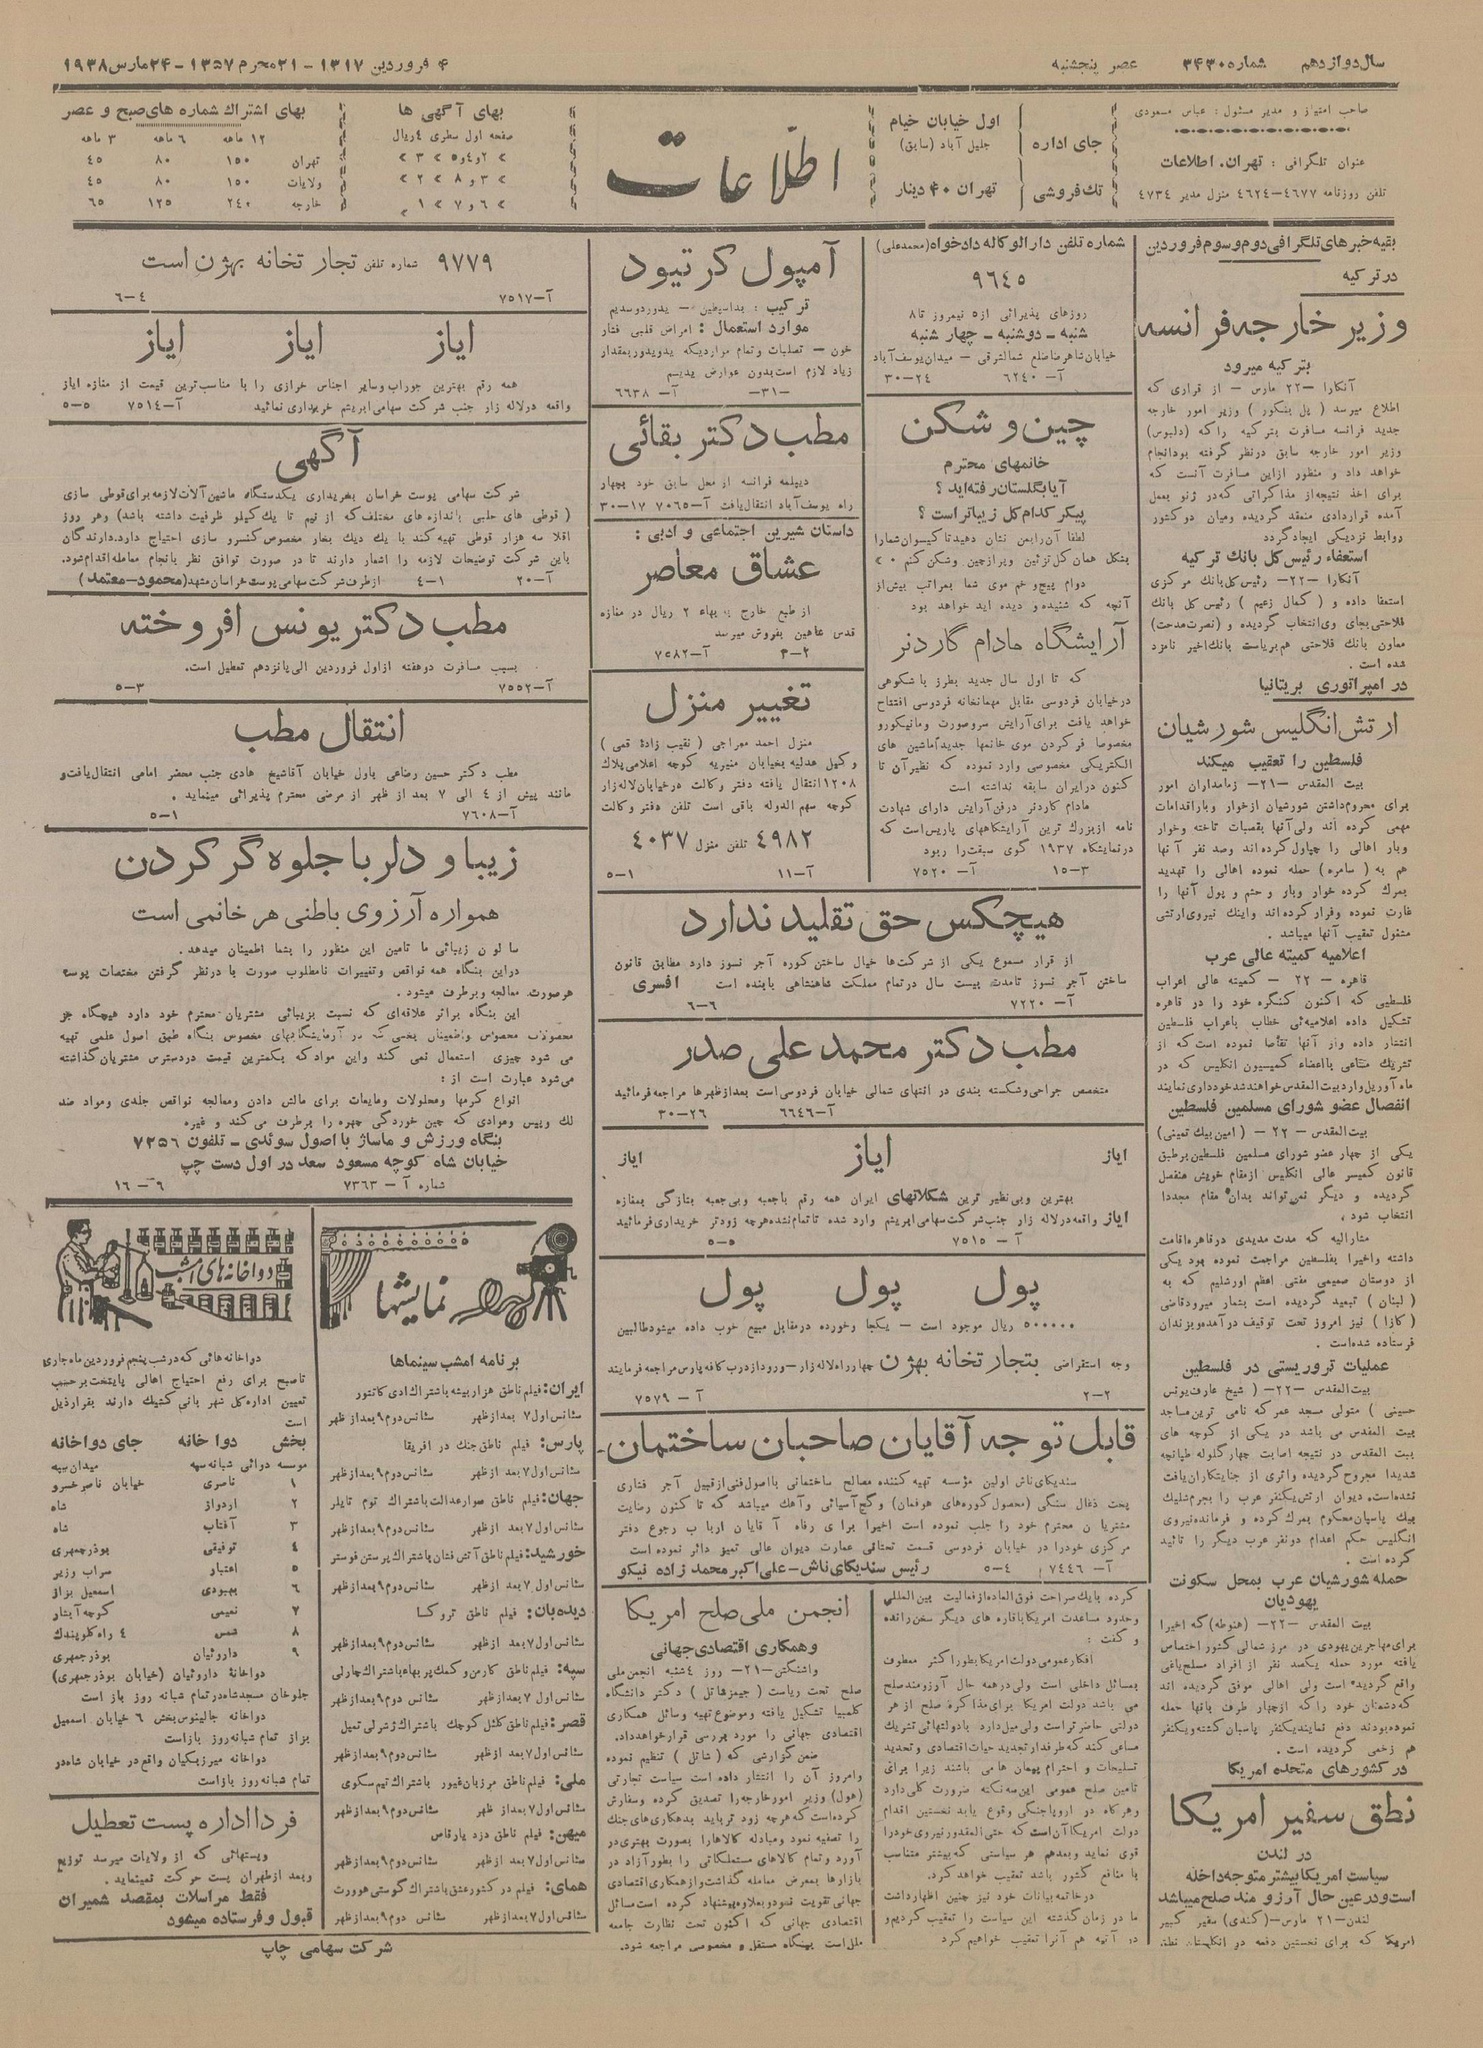 سال دوازدهم شماره ۳۴۳۰ عصر پنجشنبه ۴ فروردین ۱۳۱۷ - ۲۱ محرم ۱۳۵۷ - ۲۴ مارس ۱۹۳۸
صاحب امتیاز و مدیر مسئول : عباس مسعودی
عنوان تلگرافی : تهران. اطلاعات
تلفن روزنامه ۴۶۷۷-۴۶۲۴ منزل مدیر ۴۷۳۴
جای اداره
اول خیابان خیام
جلیل آباد (سابق)
تك فروشی
تهران ۴۰ دینار
اطلاعات
بهای آگهی ها
صفحه اول سطری ۴ ریال
> ۲ و ۴ و ۵ > ۳ >
> ۳ و ۸ > ۲ >
> ۶ و ۷ > ۱ >
بهای اشتراك شماره های صبح و عصر
۱۲ ماهه ۶ ماهه ۳ ماهه
تهران ۱۵۰ ۸۰ ۴۵
ولایات ۱۵۰ ۸۰ ۴۵
خارجه ۲۴۰ ۱۲۵ ۶۵
بقیه خبرهای تلگرافی دوم و سوم فروردین
در ترکیه
وزیر خارجه فرانسه
بترکیه میرود
آنکارا -۲۲ مارس - از قراری که
اطلاع میرسد ( پل بنکور ) وزیر امور خارجه
جدید فرانسه مسافرت بترکیه راکه (دلبوس)
وزیر امور خارجه سابق درنظر گرفته بودانجام
خواهد داد و منظور ازاین مسافرت آنست که
برای اخذ نتیجه‌از مذاکراتی که‌در ژنو بعمل
آمده قراردادی منعقد گردیده ومیان دو کشور
روابط نزدیکی ایجادگردد
استعفاء رئیس کل بانك ترکیه
آنکارا -۲۲- رئیس کل بانك مرکزی
استعفا داده و ( کمال زعیم ) رئیس کل بانك
فلاحتی بجای وی‌انتخاب گردیده و (نصرت‌مدحت)
معاون بانك فلاحتی هم بریاست بانك اخیر نامزد
شده است .
در امپراتوری بریتانیا
ارتش انگلیس شورشیان
فلسطین را تعقیب میکند
بیت المقدس -۲۱- زمامداران امور
برای محروم‌داشتن شورشیان ازخوار وبار اقدامات
مهمی کرده اند ولی‌آنها بقصبات تاخته وخوار
وبار اهالی را چپاول کرده‌اند وصد نفر آنها
هم به ( سامره) حمله نموده اهالی را تهدید
بمرك کرده خوار وبار و حشم و پول آنها را
غارت نموده وفرار کرده اند واینك نیروی ارتشی
مشغول تعقیب آنها میباشد .
اعلامیه کمیته عالی عرب
قاهره - ۲۲ - کمیته عالی اعراب
فلسطینی که اکنون کنگره خود را در قاهره
تشکیل داده اعلامیه‌ئی خطاب باعراب فلسطین
انتشار داده واز آنها تقاضا نموده است‌که از
تشریك مساعی بااعضاء کمیسیون انگلیس که در
ماه آوریل وارد بیت‌المقدس خواهند شد خودداری‌نمایند
انفصال عضو شورای مسلمین فلسطین
بیت‌المقدس - ۲۲ - ( امین بیك تمیمی)
یکی از چهار عضو شورای مسلمین فلسطین برطبق
قانون کمیسر عالی انگلیس از مقام خویش منفصل
گردیده و دیگر نمی‌تواند بدان مقام مجددا
انتخاب شود .
مشارالیه که مدت مدیدی درقاهره‌اقامت
داشته واخیرا بفلسطین مراجعت نموده بود یکی
از دوستان صمیمی مفتی اعظم اورشلیم که به
( لبنان ) تبعید گردیده است بشمار میرود قاضی
( کازا ) نیز امروز تحت توقیف درآمده‌و بزندان
فرستاده شده‌است .
عملیات تروریستی در فلسطین
بیت‌المقدس -۲۲- ( شیخ عارف‌یونس
حسینی ) متولی مسجد عمر که نامی ترین‌مساجد
بیت المقدس می باشد در یکی از کوچه های
بیت المقدس در نتیجه اصابت چهار گلوله طپانچه
شدیدا مجروح گردیده واثری از جنایتکاران یافت
نشده‌است. دیوان ارتش یکنفر عرب را بجرم شلیك
بیك پاسبان محکوم بمرك کرده و فرمانده نیروی
انگلیس حکم اعدام دونفر عرب دیگر را تائید
کرده است .
حمله شورشیان عرب بمحل سکونت
یهودیان
بیت المقدس -۲۲- (هنوطه) که اخیرا
برای‌مهاجرین یهودی در مرز شمالی کشور اختصاص
یافته مورد حمله یکصد نفر از افراد مسلح یاغی
واقع گردیده است ولی اهالی موفق گردیده اند
که دشمنان خود راکه ازچهار طرف بآنها حمله
نموده‌بودند دفع نمایند یکنفر پاسبان کشته ویکنفر
هم زخمی گردیده است .
در کشورهای متحده امریکا
نطق سفیر امریکا
در لندن
سیاست امریکا بیشتر متوجه داخله
است ودر عین حال آرزو مند صلح میباشد
لندن-۲۱ مارس-(کندی) سفیر کبیر
امریکا که برای نخستین دفعه در انگلستان نطق
شماره تلفن دارالوکاله دادخواه (محمدعلی)
۹۶۴۵
روزهای پذیرائی از ۵ نیمروز تا ۸
شنبه - دوشنبه - چهار شنبه
خیابان شاهرضا ضلع شمالشرقی - میدان یوسف آباد
آ- ۶۲۴۰ ۲۴-۳۰
چین و شکن
خانمهای محترم
آیا بگلستان رفته‌اید ؟
پیکر کدام گل زیباتر است ؟
لطفا آن‌رابمن نشان دهید تا گیسوان شمارا
بشکل همان گل تزئین وپرازچین وشکن کنم
دوام پیچ و خم موی شما بمراتب بیش‌از
آنچه که شنیده و دیده اید خواهد بود
آرایشگاه مادام گاردنر
که تا اول سال جدید بطرز باشکوهی
درخیابان فردوسی مقابل مهمانخانه فردوسی افتتاح
خواهد یافت برای‌آرایش سروصورت ومانیکورو
مخصوصا فر کردن موی خانمها جدیداماشین های
الکتریکی مخصوصی وارد نموده که نظیر آن تا
کنون درایران سابقه نداشته است
مادام گاردنر درفن‌آرایش دارای شهادت
نامه ازبزرك ترین آرایشگاههای پاریس است که
درنمایشگاه ۱۹۳۷ گوی سبقت را ربود
۳-۱۵ آ- ۷۵۲۰
آمپول کرتیود
ترکیب :
موارد استعمال : امراض قلبی فشار
خون - تصلبات وتمام مواردیکه یدویدور بمقدار
زیاد لازم است بدون عوارض یدیسم
-۳۱- آ- ۶۶۳۸
مطب دکتر بقائی
دیپلمه فرانسه از محل سابق خود بچهار
راه یوسف آباد انتقال‌یافت آ-۷۰۶۵ ۱۷-۳۰
داستان شیرین اجتماعی و ادبی :
عشاق معاصر
از طبع خارج به بهاء ۲ ریال در مغازه
قدس شاهین بفروش میرسد
۲-۳ آ-۷۵۸۲
تغییر منزل
منزل احمد معراجی ( نقیب زادهٔ قمی )
وکیل عدلیه بخیابان منیریه کوچه اعلامی پلاك
۱۲۰۸ انتقال یافته دفتر وکالت درخیابان لاله‌زار
کوچه سهم الدوله باقی است تلفن دفتر وکالت
۴۹۸۲ تلفن منزل ۴۰۳۷
آ-۱۱ ۱-۵
هیچکس حق تقلید ندارد
از قرار مسموع یکی از شرکت‌ها خیال ساختن کوره آجر نسوز دارد مطابق قانون
ساختن آجر نسوز تامدت بیست سال درتمام مملکت شاهنشاهی باینده است افسری
آ- ۷۲۲۰ ۶-۶
مطب دکتر محمد علی صدر
متخصص جراحی وشکسته بندی در انتهای شمالی خیابان فردوسی است بعدازظهرها مراجعه فرمائید
آ-۶۶۴۶ ۲۶-۳۰
ایاز ایاز ایاز
بهترین وبی‌نظیر ترین شکلاتهای ایران همه رقم باجعبه وبی‌جعبه بتازگی بمغازه
ایاز واقعه درلاله زار جنب شرکت سهامی ابریشم وارد شده تا تمام نشده هرچه زودتر خریداری فرمائید
آ- ۷۵۱۵ ۵-۵
پول پول پول
۵۰۰۰۰۰ ریال موجود است - یکجا وخورده درمقابل مبیع خوب داده میشود طالبین
وجه استقراضی بتجارتخانه بهژن چهارراه لاله‌زار - ورود ازدرب کافه پارس مراجعه فرمایند
۲-۲ آ- ۷۵۷۹
قابل توجه آقایان صاحبان ساختمان-
سندیکای ناش اولین مؤسسه تهیه کننده مصالح ساختمانی بااصول فنی ازقبیل آجر فشاری
پخت ذغال سنگی (محصول کوره‌های هوفمان) وگچ آسیائی وآهك میباشد که تا کنون رضایت
مشتریان محترم خود را جلب نموده است اخیرا برای رفاه آقایان ارباب رجوع دفتر
مرکزی خودرا در خیابان فردوسی قسمت تحتانی عمارت دیوان عالی تمیز دائر نموده است
آ- ۷۴۴۶ ۴-۵ رئیس سندیکای ناش-علی اکبر محمد زاده نیکو
کرده بایك صراحت فوق العاده‌از فعالیت بین‌المللی
وحدود مساعدت امریکا باقاره های دیگر سخن‌رانده
و گفت :
افکار عمومی دولت امریکا بطور اکثر معطوف
بمسائل داخلی است ولی درهمه حال آرزومند صلح
می باشد دولت امریکا برای مذاکره صلح از هر
دولتی حاضر تراست ولی میل دارد بادولتهائی تشریك
مساعی کند که طرفدار تجدید حیات اقتصادی و تحدید
تسلیحات و احترام پیمان ها می باشند زیرا برای
تامین صلح عمومی این سه نکته ضرورت کلی دارد
وهرگاه در اروپا جنگی وقوع یابد نخستین اقدام
دولت امریکا آن‌است که حتی‌المقدور نیروی خودرا
قوی نماید وبعدهم هر سیاستی که بیشتر متناسب
با منافع کشور باشد تعقیب خواهد کرد.
درخاتمه بیانات خود نیز چنین اظهارداشت
ما در زمان گذشته این سیاست را تعقیب کردیم و
در آتیه هم آنرا تعقیب خواهیم کرد
انجمن ملی صلح امریکا
وهمکاری اقتصادی جهانی
واشنگتن-۲۱- روز ۴شنبه انجمن ملی
صلح تحت ریاست ( جیمزهاتل ) دکتر دانشگاه
کلمبیا تشکیل یافته وموضوع تهیه وسائل همکاری
اقتصادی جهانی را مورد بررسی قرار خواهد داد.
ضمن گزارشی که ( شاتل ) تنظیم نموده
وامروز آن را انتشار داده است سیاست تجارتی
(هول) وزیر امور خارجه‌را تصدیق کرده وسفارش
کرده‌است که هرچه زود تر باید بدهکاری‌های جنك
را تصفیه نمود ومبادله کالاهارا بصورت بهتری در
آورد وتمام کالاهای مستملکاتی را بطور آزاد در
بازارها بمعرض معامله گذاشت واز همکاری اقتصادی
جهانی تقویت نمود و بعلاوه پیشنهاد کرده است مسائل
اقتصادی جهانی که اکنون تحت نظارت جامعه
ملل است ببنگاه مستقل و مخصوصی مراجعه شود.
۹۷۷۹ شماره تلفن تجارتخانه بهژن است
آ-۷۵۱۷ ۴-۶
ایاز ایاز ایاز
همه رقم بهترین جوراب وسایر اجناس خرازی را با مناسب‌ترین قیمت از مغازه ایاز
واقعه درلاله زار جنب شرکت سهامی ابریشم خریداری نمائید آ-۷۵۱۴ ۵-۵
آگهی
شرکت سهامی پوست خراسان بخریداری یکدستگاه ماشین آلات لازمه برای قوطی سازی
( قوطی های حلبی باندازه های مختلف که از نیم تا یك کیلو ظرفیت داشته باشد) وهر روز
اقلا سه هزار قوطی تهیه کند با یك دیك بخار مخصوص کنسرو سازی احتیاج دارد. دارندگان
باین شرکت توضیحات لازمه را اشعار دارند تا در صورت توافق نظر بانجام معامله اقدام شود.
آ-۲۰ ۱-۴ ازطرف شرکت سهامی پوست خراسان مشهد (محمود-معتمد)
مطب دکتر یونس افروخته
بسبب مسافرت دوهفته ازاول فروردین الی پانزدهم تعطیل است.
آ-۷۵۵۲ ۳-۵
انتقال مطب
مطب دکتر حسین رضاعی باول خیابان آقاشیخ هادی جنب محضر امامی انتقال‌یافت و
مانند پیش از ۴ الی ۷ بعد از ظهر از مرضی محترم پذیرائی مینماید .
آ-۷۶۰۸ ۱-۵
زیبا و دلربا جلوه گر کردن
همواره آرزوی باطنی هر خانمی است
سالون زیبائی ما تامین این منظور را بشما اطمینان میدهد.
دراین بنگاه همه نواقص وتغییرات نامطلوب صورت با درنظر گرفتن مختصات پوست
هرصورت معالجه وبرطرف میشود .
این بنگاه براثر علاقه‌ای که نسبت بزیبائی مشتریان محترم خود دارد هیچگاه جز
محصولات مخصوص واطمینان بخشی که در آزمایشگاههای مخصوص بنگاه طبق اصول علمی تهیه
می شود چیزی استعمال نمی کند واین مواد که بکمترین قیمت دردسترس مشتریان گذاشته
می‌شود عبارت است از :
انواع کرمها ومحلولات ومایعات برای مالش دادن ومعالجه نواقص جلدی ومواد ضد
لك وپیس وموادی که چین خوردگی چهره را برطرف می کند و غیره
بنگاه ورزش و ماساژ با اصول سوئدی - تلفون ۷۲۵۶
خیابان شاه کوچه مسعود سعد در اول دست چپ
شماره آ- ۷۳۶۳ ۹-۱۶
نمایشها
برنامه امشب سینماها
ایران: فیلم ناطق هزار بیشه باشتراك ادی کانتور
سئانس اول ۷ بعد از ظهر سئانس دوم ۹ بعد از ظهر
پارس: فیلم ناطق جنك در افریقا
سئانس اول ۷ بعد از ظهر سئانس دوم ۹ بعد از ظهر
جهان: فیلم ناطق سوار عدالت باشتراك توم تایلر
سئانس اول ۷ بعد از ظهر سئانس دوم ۹ بعد از ظهر
خورشید: فیلم ناطق آتش فشان باشتراك پرستن فوستر
سئانس اول ۷ بعد از ظهر سئانس دوم ۹ بعد از ظهر
دیده‌بان: فیلم ناطق تروکسا
سئانس اول ۷ بعد از ظهر سئانس دوم ۹ بعد از ظهر
سپه: فیلم ناطق کارمن و کمك پر بهاء باشتراك چارلی
سئانس اول ۷ بعد از ظهر سئانس دوم ۹ بعد از ظهر
قصر: فیلم ناطق کلنل کوچك باشتراك ژشرلی تمپل
سئانس اول ۷ بعد از ظهر سئانس دوم ۹ بعد از ظهر
ملی: فیلم ناطق مرزبان غیور باشتراك تیم مکوی
سئانس اول ۷ بعد از ظهر سئانس دوم ۹ بعد از ظهر
میهن: فیلم ناطق دزد پارقاس
سئانس اول ۷ بعد از ظهر سئانس دوم ۹ بعد از ظهر
همای: فیلم در کشور عشق باشتراك گوستی هوورت
سئانس اول ۷ بعد از ظهر سئانس دوم ۹ بعد از ظهر
دواخانه‌های امشب
دواخانه هائی که درشب پنجم فروردین ماه جاری
تاصبح برای رفع احتیاج اهالی پایتخت برحسب
تعیین اداره کل شهربانی کشیك دارند بقرار ذیل
است
بخش دواخانه جای دواخانه
موسسه دوائی شبانه سپه میدان سپه
۱ ناصری خیابان ناصرخسرو
۲ اردواز شاه
۳ آفتاب شاه
۴ توفیقی بوذرجمهری
۵ اعتبار سراب وزیر
۶ بهبودی اسمعیل بزاز
۷ نعیمی کوچه آبشار
۸ شمس ۴ راه گلوبندك
۹ داروئیان بوذرجمهری
دواخانهٔ داروئیان (خیابان بوذرجمهری)
جلوخان مسجدشاه در تمام شبانه روز باز است
دواخانه جالینوس بخش ۶ خیابان اسمعیل
بزاز تمام شبانه روز بازاست
دواخانه میرزیکیان واقع در خیابان شاه در
تمام شبانه روز بازاست
فردا اداره پست تعطیل
وپستهائی که از ولایات میرسد توزیع
وبعد ازطهران پست حرکت نمینماید.
فقط مراسلات بمقصد شمیران
قبول و فرستاده میشود
شرکت سهامی چاپ